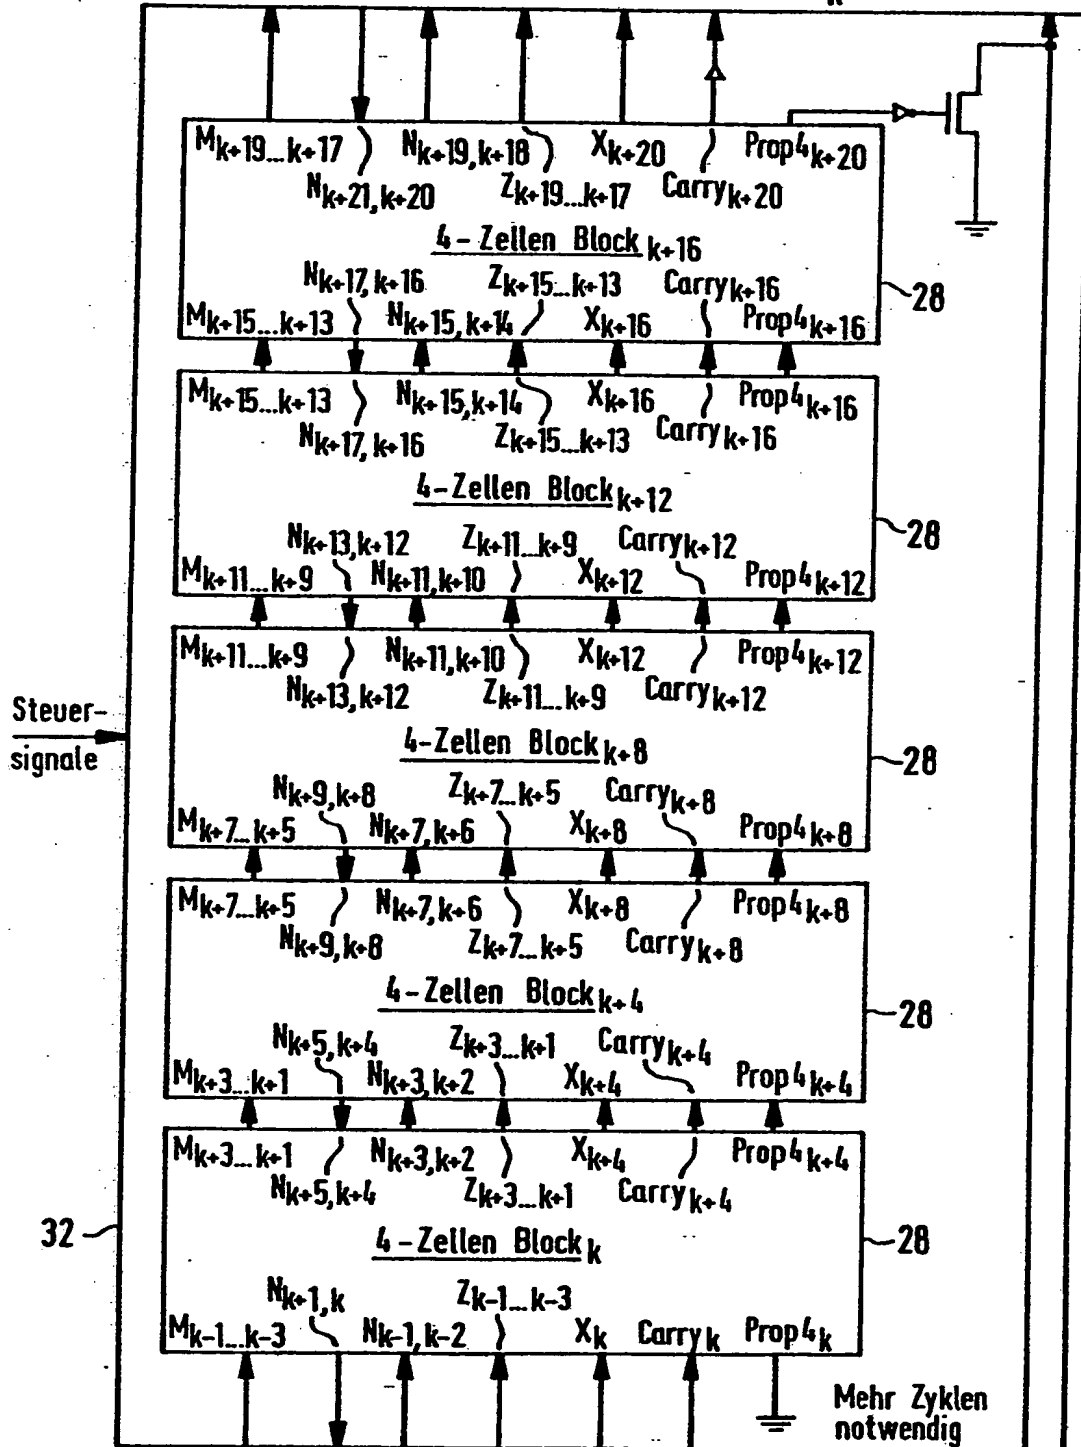 M k+19...k+17 N k+19,k+18 X k+20 Prop4 k+20
N k+21,k+20 Z k+19...k+17 Carry k+20
4-Zellen Block k+16
N k+17,k+16 Z k+15...k+13 Carry k+16
M k+15...k+13 N k+15,k+14 X k+16 Prop4 k+16
28
M k+15...k+13 N k+15,k+14 X k+16 Prop4 k+16
N k+17,k+16 Z k+15...k+13 Carry k+16
4-Zellen Block k+12
N k+13,k+12 Z k+11...k+9 Carry k+12
M k+11...k+9 N k+11,k+10 X k+12 Prop4 k+12
28
M k+11...k+9 N k+11,k+10 X k+12 Prop4 k+12
N k+13,k+12 Z k+11...k+9 Carry k+12
Steuer-
signale
4-Zellen Block k+8
28
N k+9,k+8 Z k+7...k+5 Carry k+8
M k+7...k+5 N k+7,k+6 X k+8 Prop4 k+8
M k+7...k+5 N k+7,k+6 X k+8 Prop4 k+8
N k+9,k+8 Z k+7...k+5 Carry k+8
4-Zellen Block k+4
28
N k+5,k+4 Z k+3...k+1 Carry k+4
M k+3...k+1 N k+3,k+2 X k+4 Prop4 k+4
M k+3...k+1 N k+3,k+2 X k+4 Prop4 k+4
N k+5,k+4 Z k+3...k+1 Carry k+4
32
4-Zellen Block k
28
N k+1,k Z k-1...k-3
M k-1...k-3 N k-1,k-2 X k Carry k Prop4 k
Mehr Zyklen
notwendig